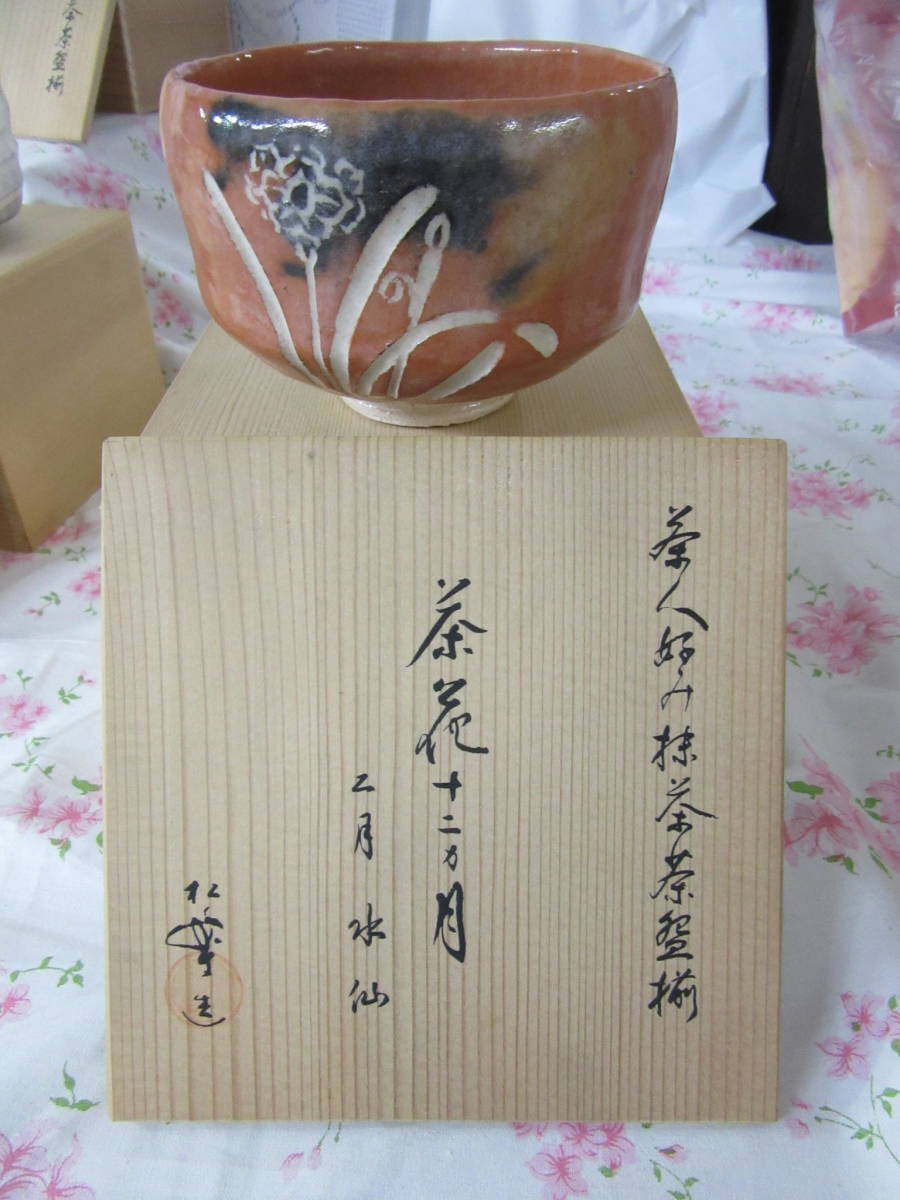 茶人好み抹茶茶盌揃
茶花十二カ月
二月 水仙
松楽造
茶盌揃